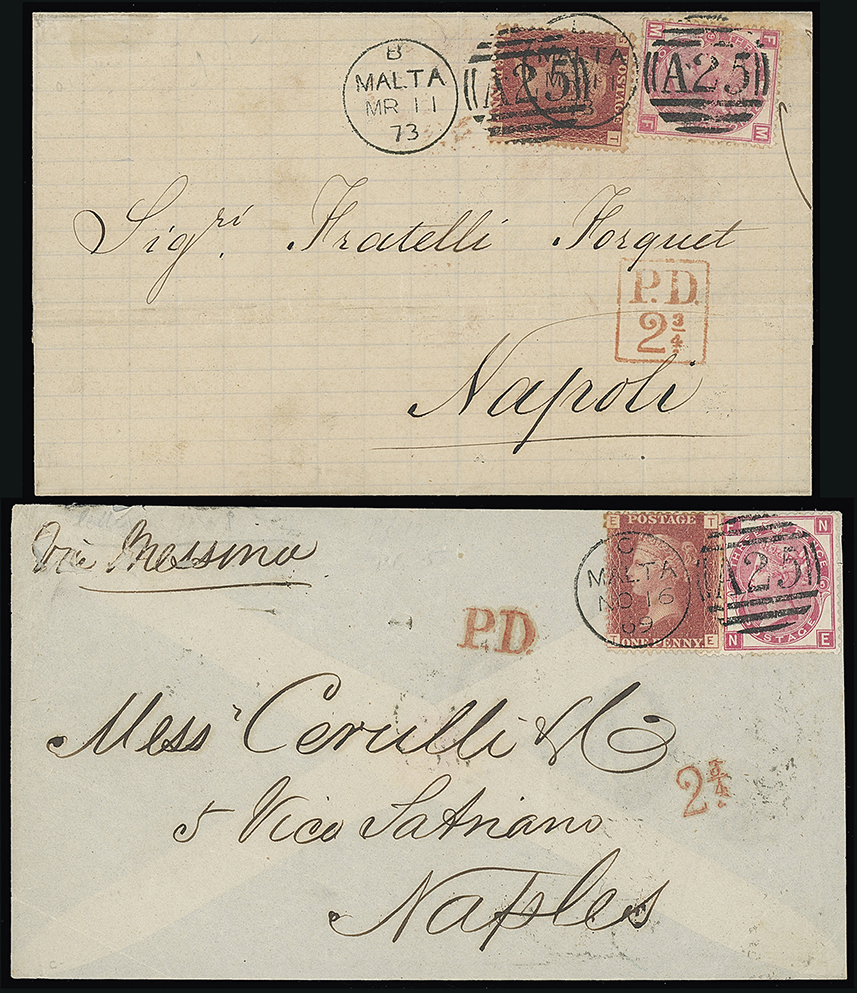 B
MALTA
MR 11
73
A25
MALTA
A25
F
M
F
M
T
POSTAGE
Sigri. Fratelli Forquet
P.D.
2 3/4
Napoli
Via Messina
E POSTAGE T
T ONE PENNY E
C
MALTA
NO 16
69
A25
N
N E
POSTAGE
P.D
Messrs Cerulli & Co
5 Vico Satriano
2 3/4
Naples